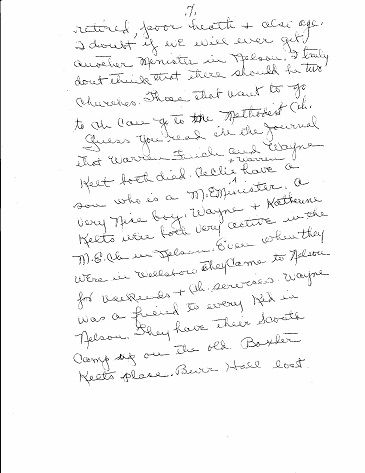 .7.
retired, poor health + also age.
I doubt if we will ever get
another Minister in Nelson. I truly
dont think that there should be two
Churches. Those that want to go
to Ch can go to the Methodist Ch.
Guess you read in the Journal
that Warren Finch and Wayne
Kelt both died. + Warren have a
son who is a M.E Minister. A
very nice boy. Wayne + Katherine
Kelts were both very active in the
M.E. Ch in Nelson. Even when they
were in Wellsboro they came to Nelson
for weekends + Ch. services. Wayne
was a friend to every kid in
Nelson. They have their Scouth
Camp up on the old Baxter
Kelts place. Burr Hall lost